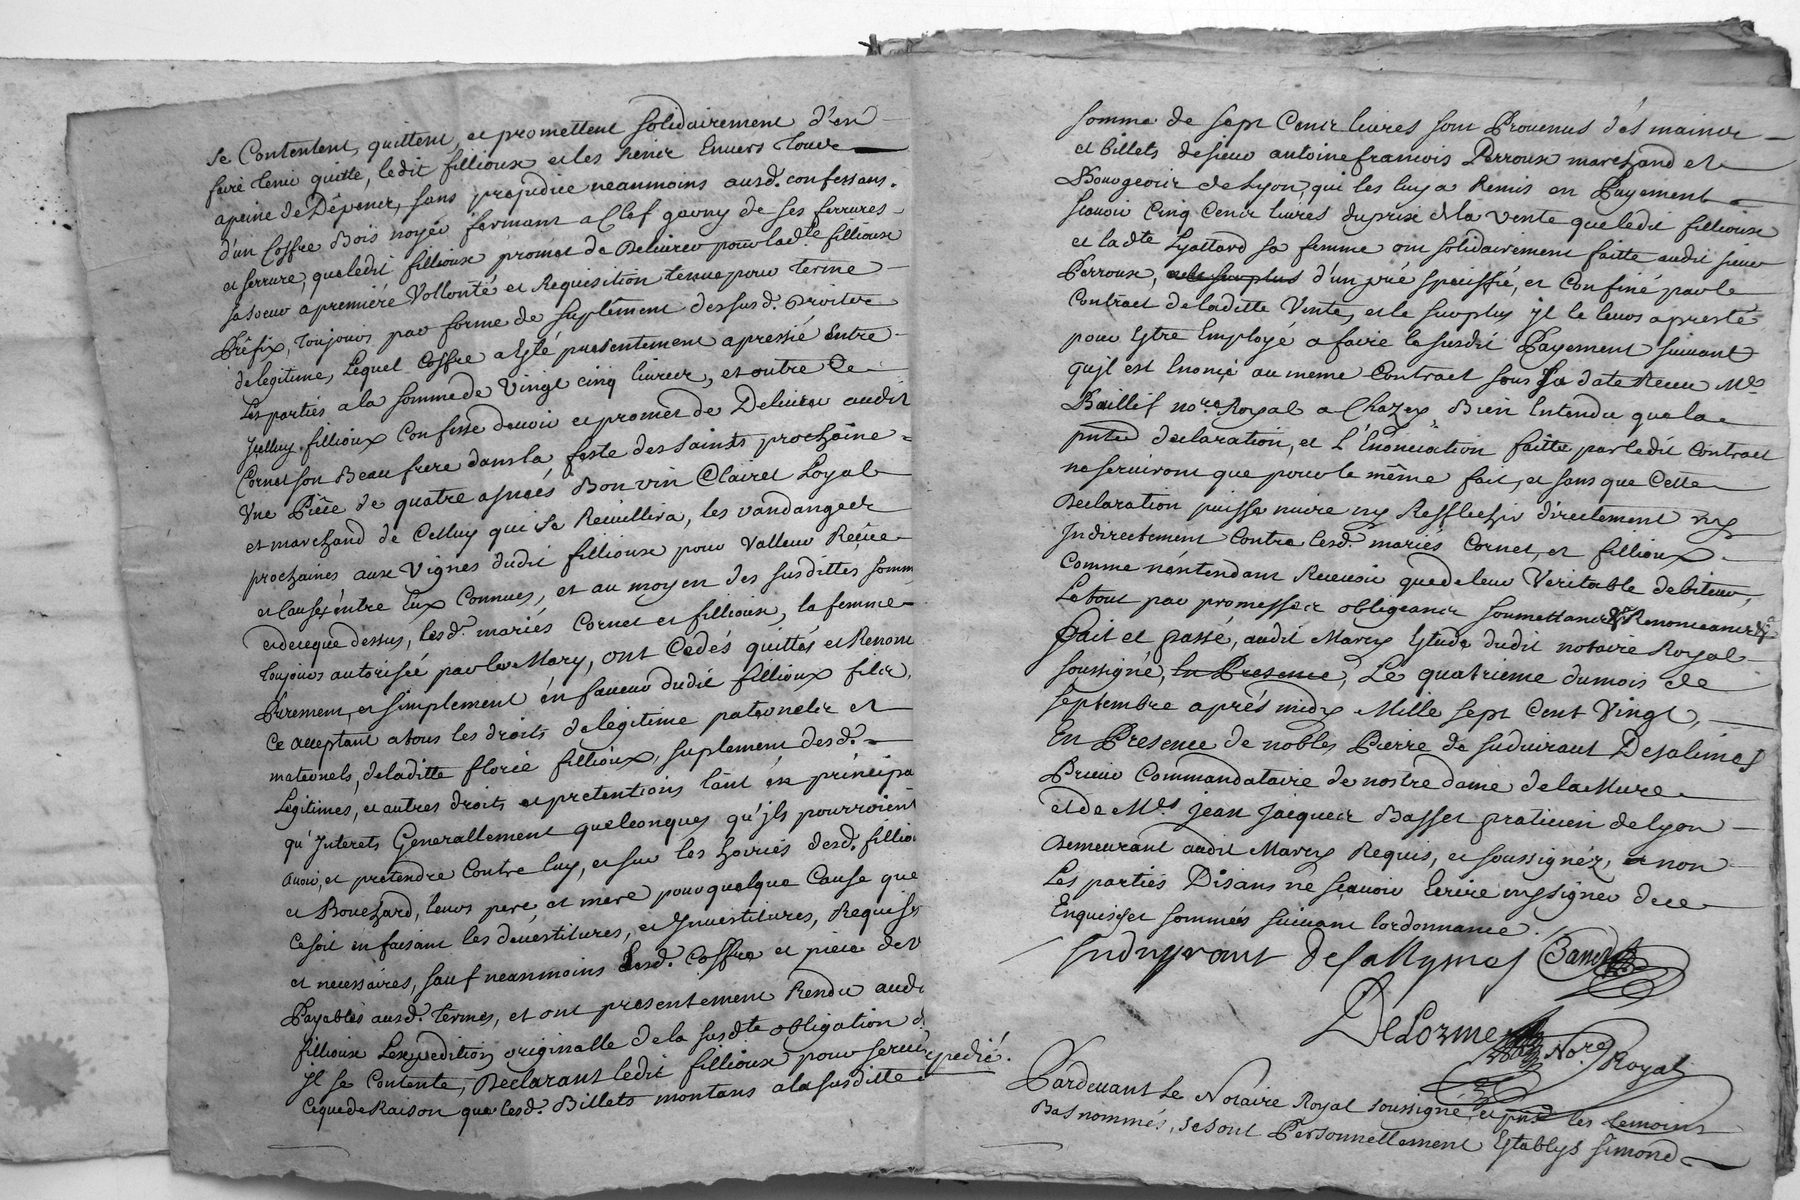 se Contentent, quittent, et promettent solidairement d'en
faire tenir quitte, ledit fillioux et les siens Envers tous
a peine de Dépens, sans prejudice neanmoins ausd. confessans.
d'un Coffre Bois noyer fermant a Clef garny de ses ferrures
et serrure, que ledit fillioux promet de Delivrer pour lad.te fillioux
sa soeur a premiére Vollonté et Requisition tenue pour terme
Préfix, toujours par forme de suplément des susd. Droits
de legitime, Lequel Coffre a Esté presentement apressié Entre
Les parties a la somme de Vingt cinq livres, et outre Ce
Icelluy fillioux Confesse devoir et promet de Delivrer audit
Cornet son Beau frere dans la feste des saints prochaine
Vne Piéce de quatre asnées Bon vin Clairet Loyal
et marchand de Celluy qui se Recuillira, les vandanges
prochaines aux Vignes dudit fillioux pour Valleur Reçue
et Causes entre Eux Connues, et au moyen des susdittes somm
et de ce que dessus, lesd. mariés Cornet et fillioux, la femme
toujours autorisée par le Mary, ont Cedés quittés et Renont
Purement, et simplement én faveur dudit fillioux filz,
Ce acceptant a tous les droits de legitime paternels et
maternels, de laditte florie fillioux, suplement desd.
Legitimes, et autres droits et pretentions tant én principa
qu'Interets Generallement quelconques qu'ils pourroient
avoir, et pretendre Contre luy, et sur les hoiries desd. fillio
et Bouchard, leurs pere et mere pour quelque Cause que
Ce soit en faisant les dévestitures, et Investitures, Requises
et necessaires, sauf neanmoins Lesd. Coffre et piéce de v
Payables ausd. termes, et ont presentement Rendu audi
fillioux Lexpedition originalle de la susd.te obligation d
Il se Contente, Declarant ledit fillioux pour servir
Ce que de Raison que lesd. Billets montans a la susditte
expedié.
somme de sept Cents livres sont Provenus dés mains
et billets de sieur antoine francois Perroux marchand et
Bourgeois de Lyon, qui les luy a Remis en Payement
scavoir Cinq Cents livres du prix de la vente que ledit fillioux
et lad.te Lyottard sa femme ont solidairement faitte audit sieur
Perroux, et le surplus d'un pré speciffié, et Confiné par le
Contract de laditte Vente, et le surplus Il le leurs a presté
pour Estre Employé a faire le susdit Payement suivant
qu'il est Enoncé au meme Contract sous sa date Receu M.e
Baillif no.re Royal a Chazey, Bien Entendu que la
pnte declaration, et L'Enonciation faitte par ledit Contract
ne serviront que pour le même fait, et sans que Cette
Declaration puisse nuire ny Refflechir directement ny
Indirectement Contre lesd. mariés Cornet, et fillioux
Comme n'éntendant Recevoir que de leur Veritable debiteur,
Le tout par promesses obligeances soumettances & Renonceances &c
fait et passé, audit Marcy Etude dudit notaire Royal
soussigné, en Presence, Le quatrieme du mois de
septembre aprés midy Mille sept Cent Vingt,
En Presence de nobles Pierre de suduirant Desalimes
Prieur Commandataire de nostre dame de la Mure
et de M.es jean jacques Basset praticien de lyon
demeurant audit Marcy Requis, et soussignéz, et non
Les parties Disans né sçavoir Ecrire ny signer de ce
Enquises et sommées suivant l'ordonnance.
Suduyrant Desallymes
DeLorme No.re Royal
Pardevant Le Notaire Royal soussigné, et pnts les temoins
Bas nommés, se sont Personnellement Establys simond